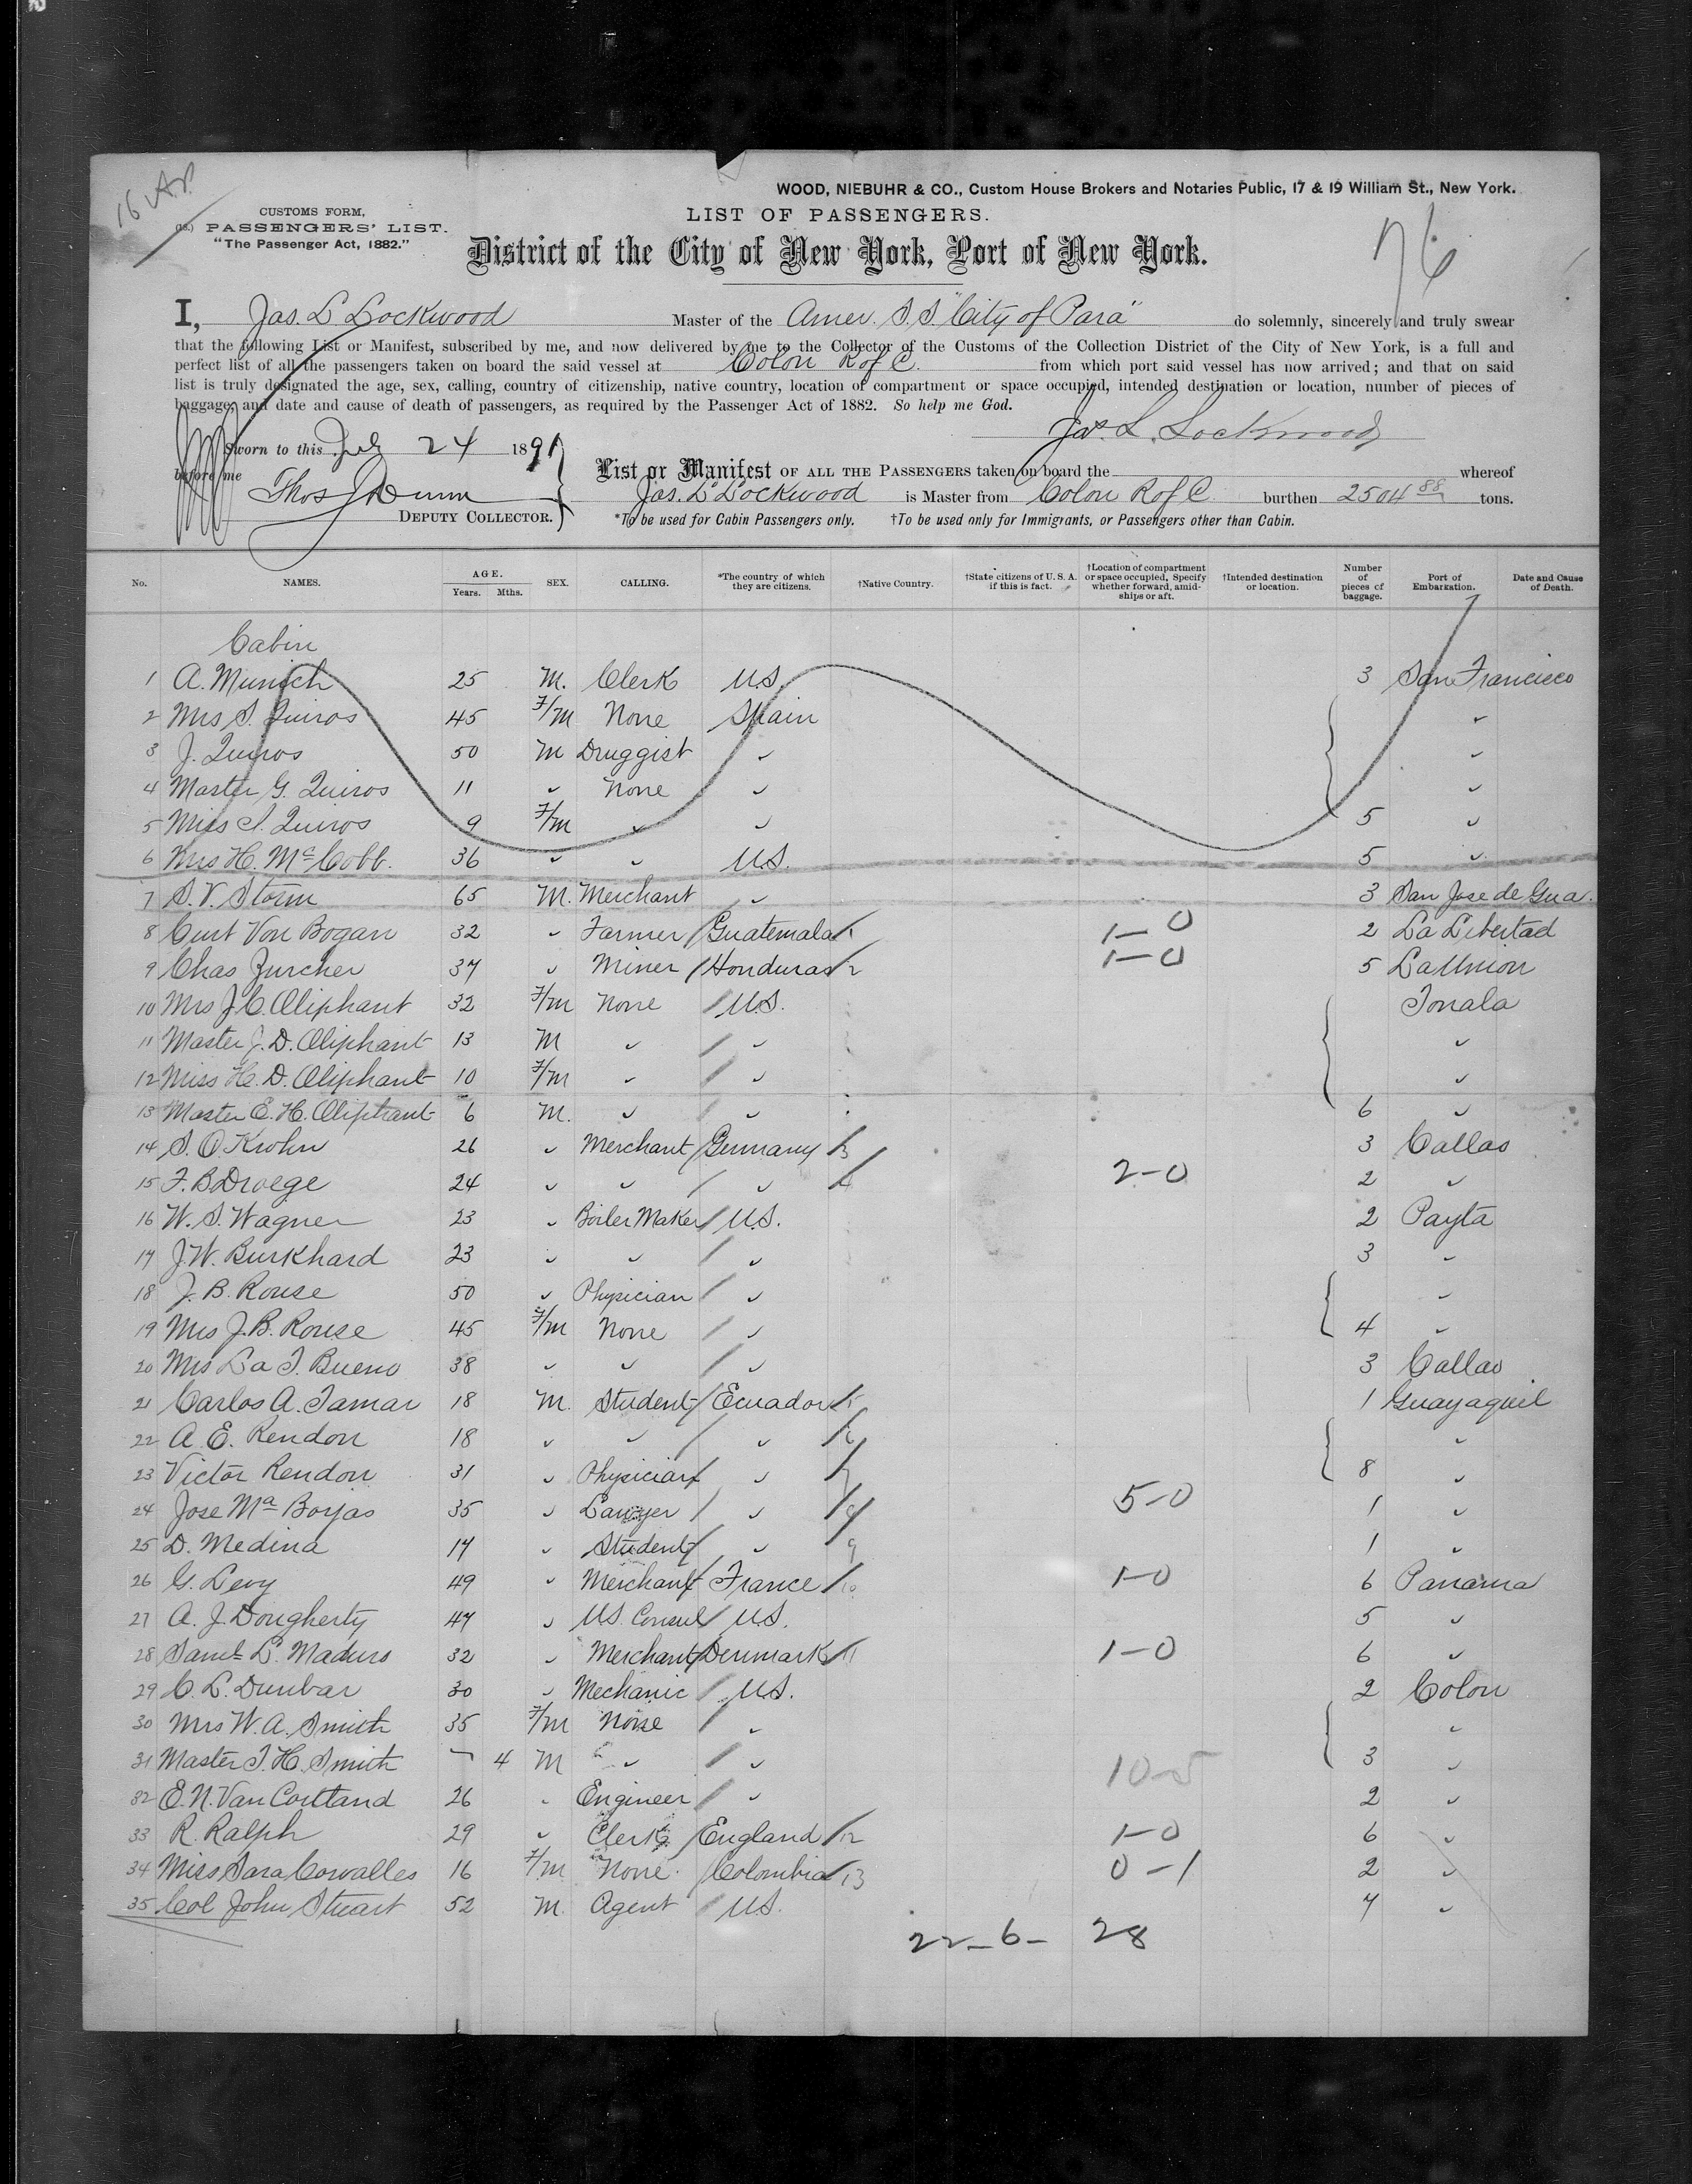 16 Ap
WOOD, NIEBUHR & CO., Custom House Brokers and Notaries Public, 17 & 19 William St., New York.
CUSTOMS FORM,
PASSENGERS' LIST.
"The Passenger Act, 1882."
LIST OF PASSENGERS.
76
District of the City of New York, Port of New York.
I, Jas. L. Lockwood Master of the Amer. S.S. "City of Para" do solemnly, sincerely and truly swear
that the following List or Manifest, subscribed by me, and now delivered by me to the Collector of the Customs of the Collection District of the City of New York, is a full and
perfect list of all the passengers taken on board the said vessel at Colon R of C. from which port said vessel has now arrived; and that on said
list is truly designated the age, sex, calling, country of citizenship, native country, location of compartment or space occupied, intended destination or location, number of pieces of
baggage, and date and cause of death of passengers, as required by the Passenger Act of 1882. So help me God.
Jas. L. Lockwood
Sworn to this July 24 1891
before me
Thos J Dunn
DEPUTY COLLECTOR.
List or Manifest OF ALL THE PASSENGERS taken on board the whereof
Jas. L. Lockwood is Master from Colon R of C. burthen 2504 88 tons.
*To be used for Cabin Passengers only. †To be used only for Immigrants, or Passengers other than Cabin.
No. NAMES. AGE. Years. Mths. SEX. CALLING. *The country of which they are citizens. †Native Country. †State citizens of U. S. A. if this is fact. †Location of compartment or space occupied, Specify whether forward, amidships or aft. †Intended destination or location. Number of pieces of baggage. Port of Embarkation. Date and Cause of Death.
Cabin
1 A. Munich 25 M. Clerk U.S. 3 San Francisco
2 Mrs S. Quiros 45 F/M None Spain ✓
3 J. Quiros 50 M Druggist ✓ ✓
4 Master G. Quiros 11 ✓ None ✓ ✓
5 Miss S. Quiros 9 F/M ✓ ✓ 5 ✓
6 Mrs H. McCobb. 36 ✓ ✓ U.S. 5 ✓
7 S. V. Storm 65 M. Merchant ✓ 3 San Jose de Gua.
8 Curt Von Bogan 32 ✓ Farmer Guatemala 1 1-0 2 La Libertad
9 Chas Zurcher 37 ✓ Miner Honduras 2 1-0 5 La Union
10 Mrs J. C. Oliphant 32 F/M None U.S. Tonala
11 Master J. D. Oliphant 13 M ✓ ✓ ✓
12 Miss H. D. Oliphant 10 F/M ✓ ✓ ✓
13 Master E. H. Oliphant 6 M. ✓ ✓ 6 ✓
14 S. O. Krohn 26 ✓ Merchant Germany 3 3 Callao
15 F. B Droege 24 ✓ ✓ ✓ 4 2-0 2 ✓
16 W. S. Wagner 23 ✓ Boiler Maker U.S. 2 Payta
17 J. W. Burkhard 23 ✓ ✓ ✓ 3 ✓
18 J. B. Rouse 50 ✓ Physician ✓ ✓
19 Mrs J. B. Rouse 45 F/M None ✓ 4 ✓
20 Mrs La T. Bueno 38 ✓ ✓ ✓ 3 Callao
21 Carlos A. Tamar 18 M. Student Ecuador 5 1 Guayaquil
22 A. E. Rendon 18 ✓ ✓ ✓ 6 ✓
23 Victor Rendon 31 ✓ Physician ✓ 7 8 ✓
24 Jose Ma Borjas 35 ✓ Lawyer ✓ 8 5-0 1 ✓
25 D. Medina 17 ✓ Student ✓ 9 1 ✓
26 G. Levy 49 ✓ Merchant France 10 1-0 6 Panama
27 A. J. Dougherty 47 ✓ U.S. Consul U.S. 5 ✓
28 Saml L. Maduro 32 ✓ Merchant Denmark 11 1-0 6 ✓
29 C. L. Dunbar 30 ✓ Mechanic U.S. 2 Colon
30 Mrs W. A. Smith 35 F/M None ✓ ✓
31 Master T. H. Smith 4 M ✓ ✓ 10-5 3 ✓
32 E. N. Van Cortland 26 ✓ Engineer ✓ 2 ✓
33 R. Ralph 29 ✓ Clerk England 12 1-0 6 ✓
34 Miss Sara Corvalles 16 F/M None Colombia 13 0-1 2 ✓
35 Col John Stuart 52 M. Agent U.S. 7 ✓
22-6- 28